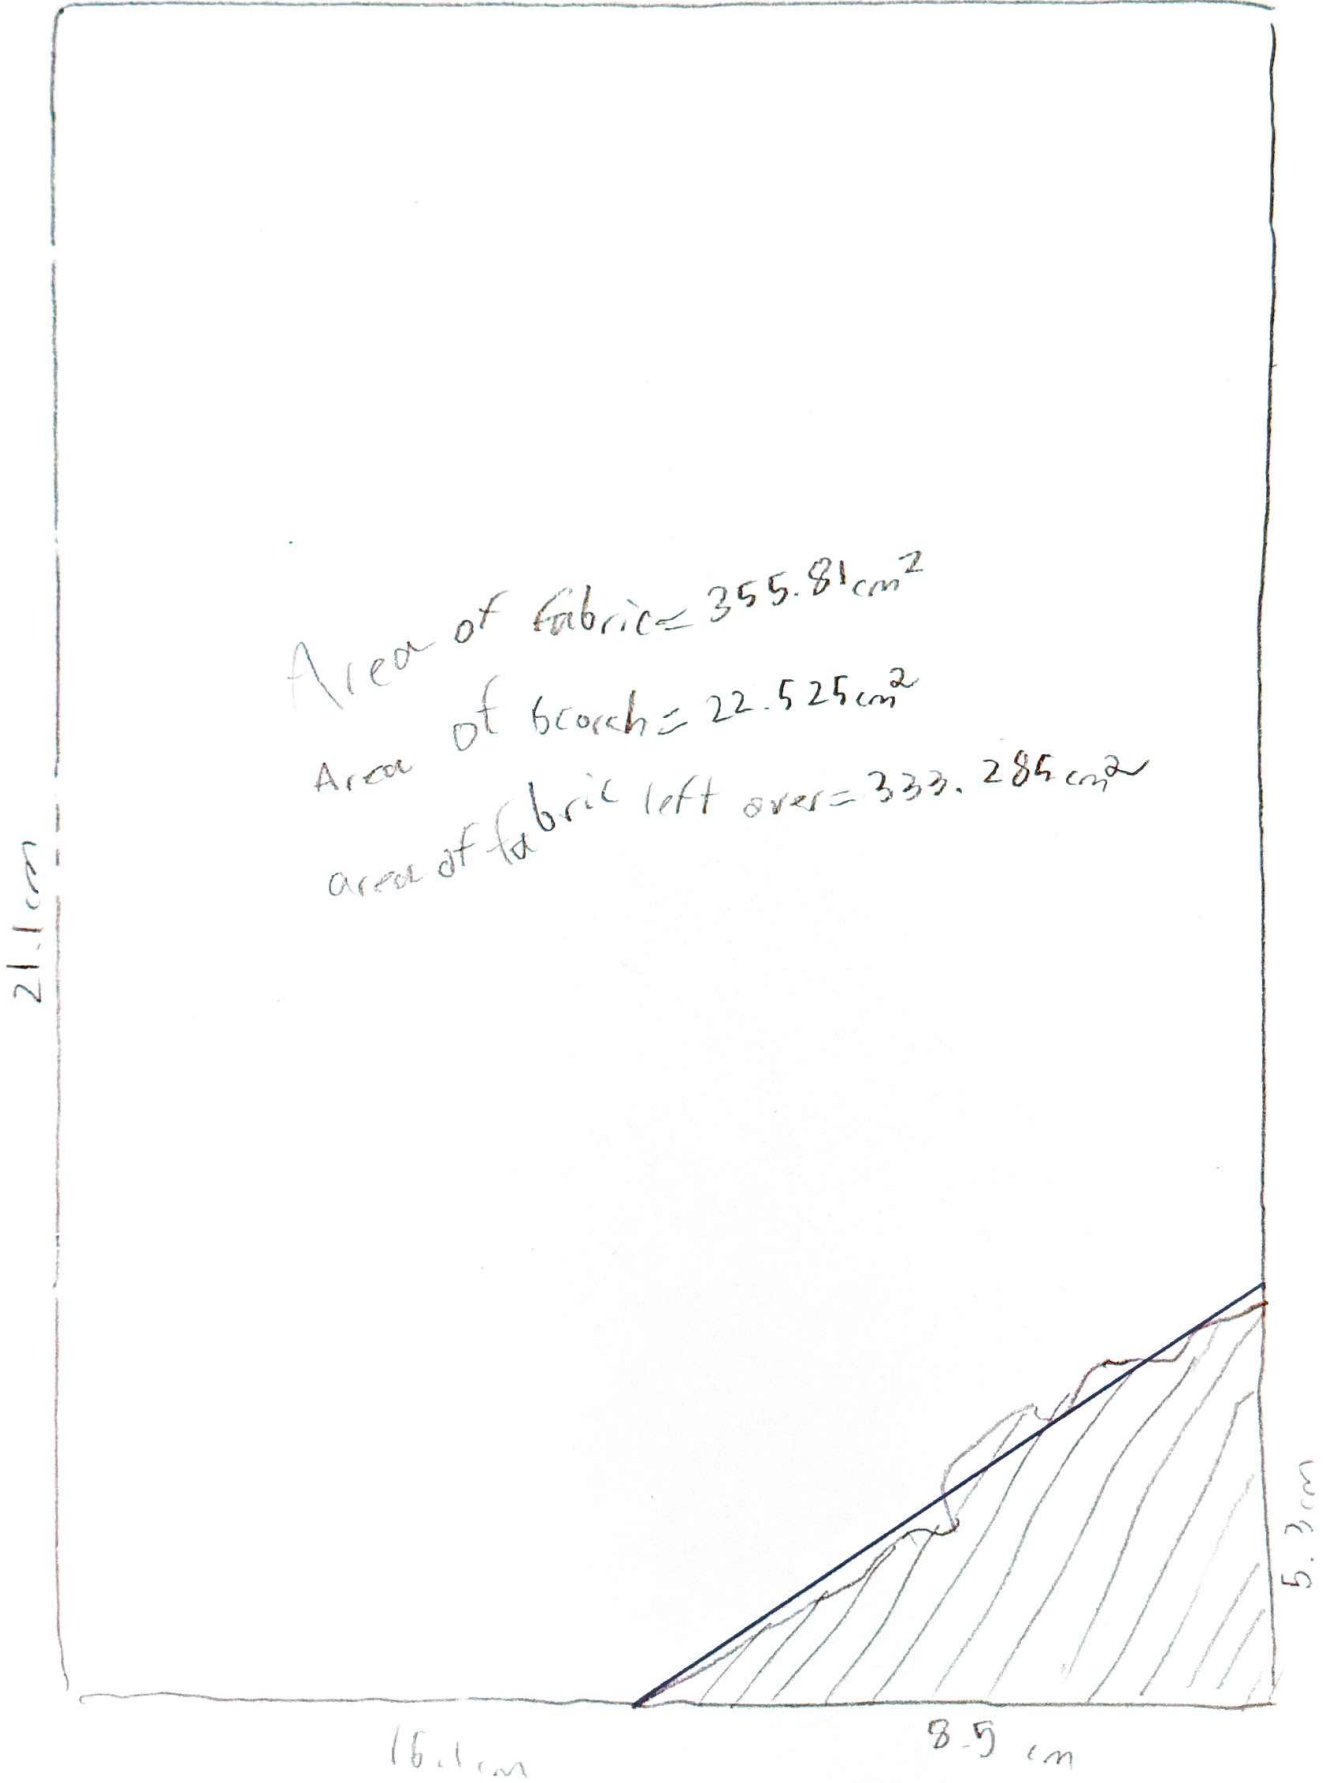 Area of fabric = 355.81 cm²
Area of scorch = 22.525 cm²
area of fabric left over = 333.285 cm²
21.1 cm
5.3 cm
16.1 cm
8.5 cm